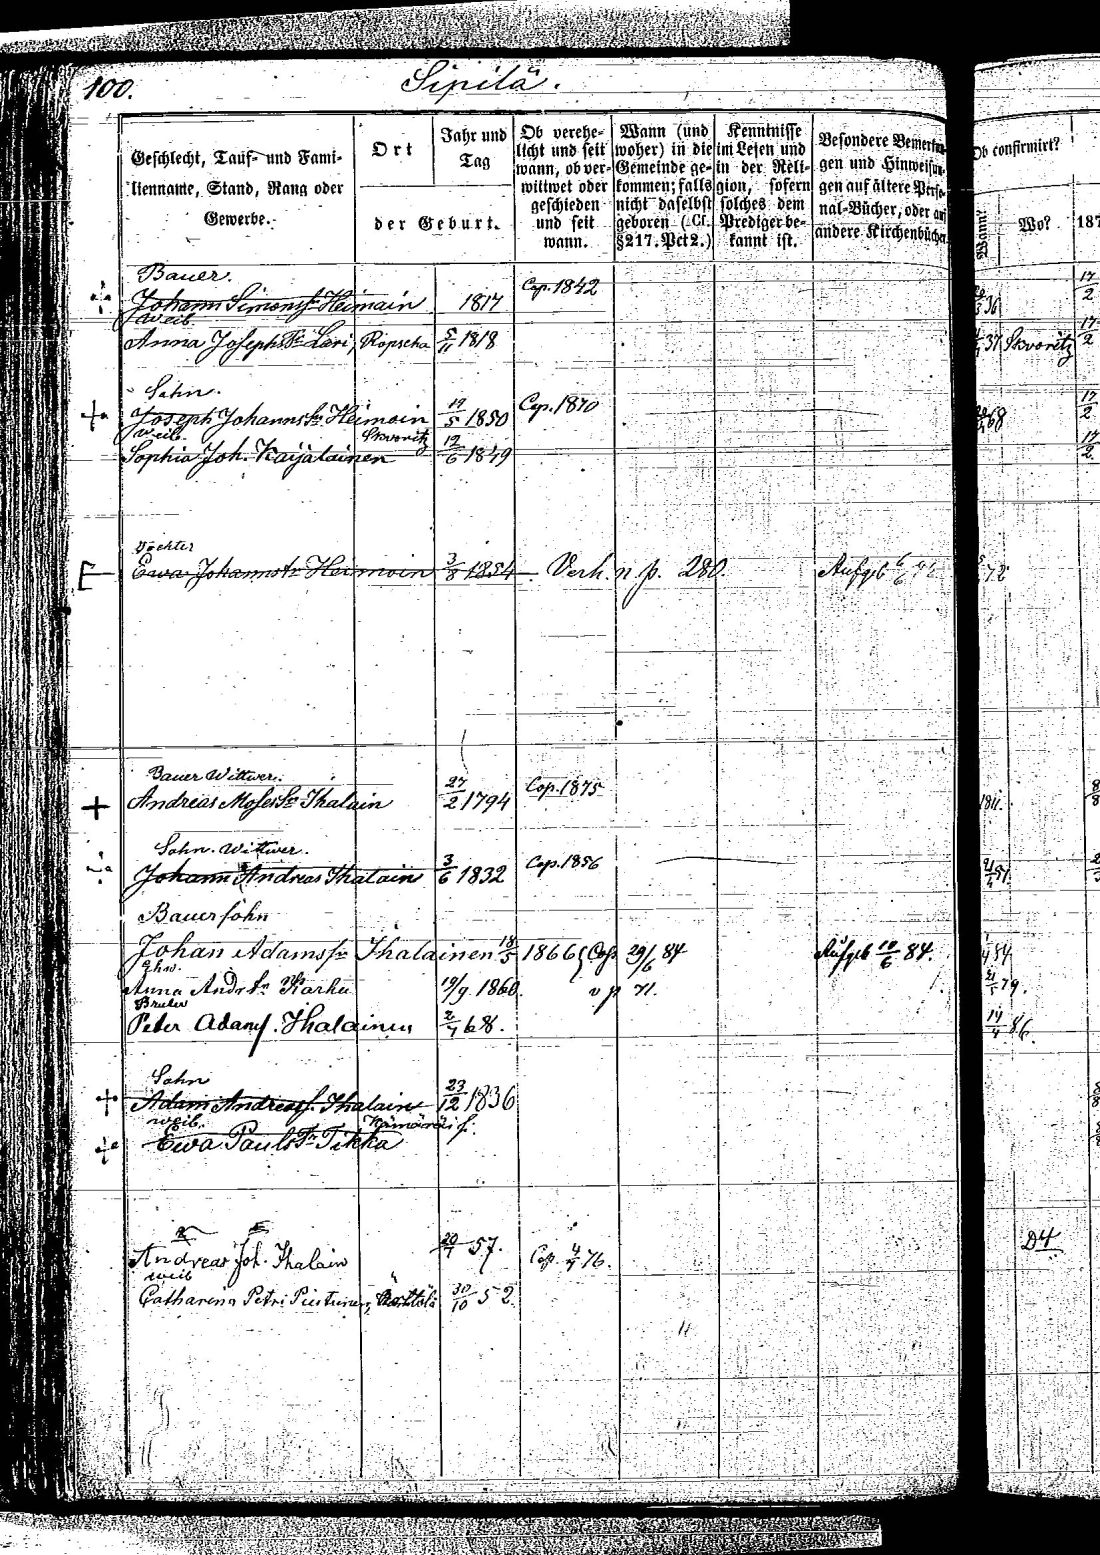 100.
Sipilä.
Geschlecht, Tauf- und Fami-
lienname, Stand, Rang oder
Gewerbe.
Ort
Jahr und
Tag
der Geburt.
Ob verehe-
licht und seit
wann, ob ver-
wittwet oder
geschieden
und seit
wann.
Wann (und
woher) in die
Gemeinde ge-
kommen; falls
nicht daselbst
geboren (Cf.
§217. Pct 2.)
Kenntnisse
im Lesen und
in der Reli-
gion, sofern
solches dem
Prediger be-
kannt ist.
Besondere Bemerkun-
gen und Hinweisun-
gen auf ältere Perso-
nal-Bücher, oder auf
andere Kirchenbücher
Ob confirmirt?
Wann?
Wo?
187
Bauer.
Johann Simonsf. Heimain 1817 Cop. 1842 36 17/2
Weib.
Anna Josephs Tr. Lari, Ropscha 5/11 1818 37 Skvoritz 17/2
Sohn.
Joseph Johanns Sn. Heimoin 19/5 1850 Cop. 1870 68 17/2
Weib. Skvoritz
Sophia Joh. Kaijalainen 12/6 1849 17/2
Tochter
Ewa Johannstr Heimoin 3/8 1854 Verh. n. p. 280. Aufgeb 72
Bauer Wittwer.
Andreas Moses Sn Ihalain 27/2 1794 Cop. 1875 1811. 8/8
Sohn. Wittwer.
Johann Andreas Ihalain 3/6 1832 Cop. 1856 51.
Bauersohn
Johan Adamsfn Ihalainen 18/5 1866 Cop 29/6 84 Aufgeb 10/6 84. 84.
Ehw.
Anna Andr. Karhu 19/9. 1860. v p 71. 79.
Bruder
Peter Adamf. Ihalainen 2/4 68. 14/4 86.
Sohn
Adam Andreasf. Ihalain 23/12 1836
Weib. Kämäräi f.
Ewa Pauls Tr. Tikka
Andreas Joh. Ihalain 20/7 57. Cop. 4/7 76. D4.
Weib
Catharina Petri Piistunen, 30/10 52.